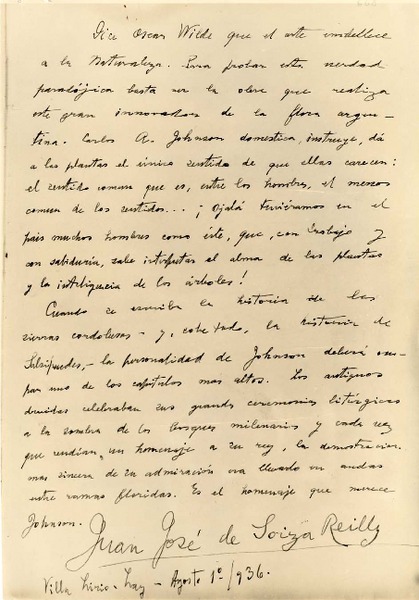 Dice Oscar Wilde que el arte embellece
a la Naturaleza. Para probar esta verdad
paradójica basta ver la obra que realiza
este gran innovador de la flora argen-
tina. Carlos A. Johnson domestica, instruye, dá
a las plantas el único sentido de que ellas carecen:
el sentido comun que es, entre los hombres, el menos
comun de los sentidos... ¡Ojalá tuviéramos en el
pais muchos hombres como éste, que, con trabajo y
con sabiduría, sabe interpretar el alma de las plantas
y la inteligencia de los árboles!
Cuando se escriba la historia de las
sierras cordobesas - y, sobre todo, la historia de
Salsipuedes, - la personalidad de Johnson deberá ocu-
par uno de los capítulos mas altos. Los antiguos
druidas celebraban sus grandes ceremonias litúrgicas
a la sombra de los bosques milenarios y cada vez
que rendian un homenaje a su rey, la demostracion
mas sincera de su admiracion era llevarlo en andas
entre ramas floridas. Es el homenaje que merece
Johnson.
Juan José de Soiza Reilly
Villa - Agosto 1º/936.